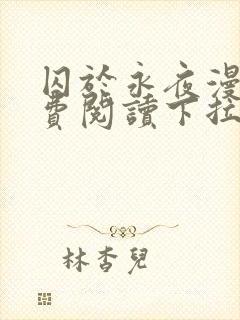 囚於永夜漫
費閱讀下拉
林杏兒